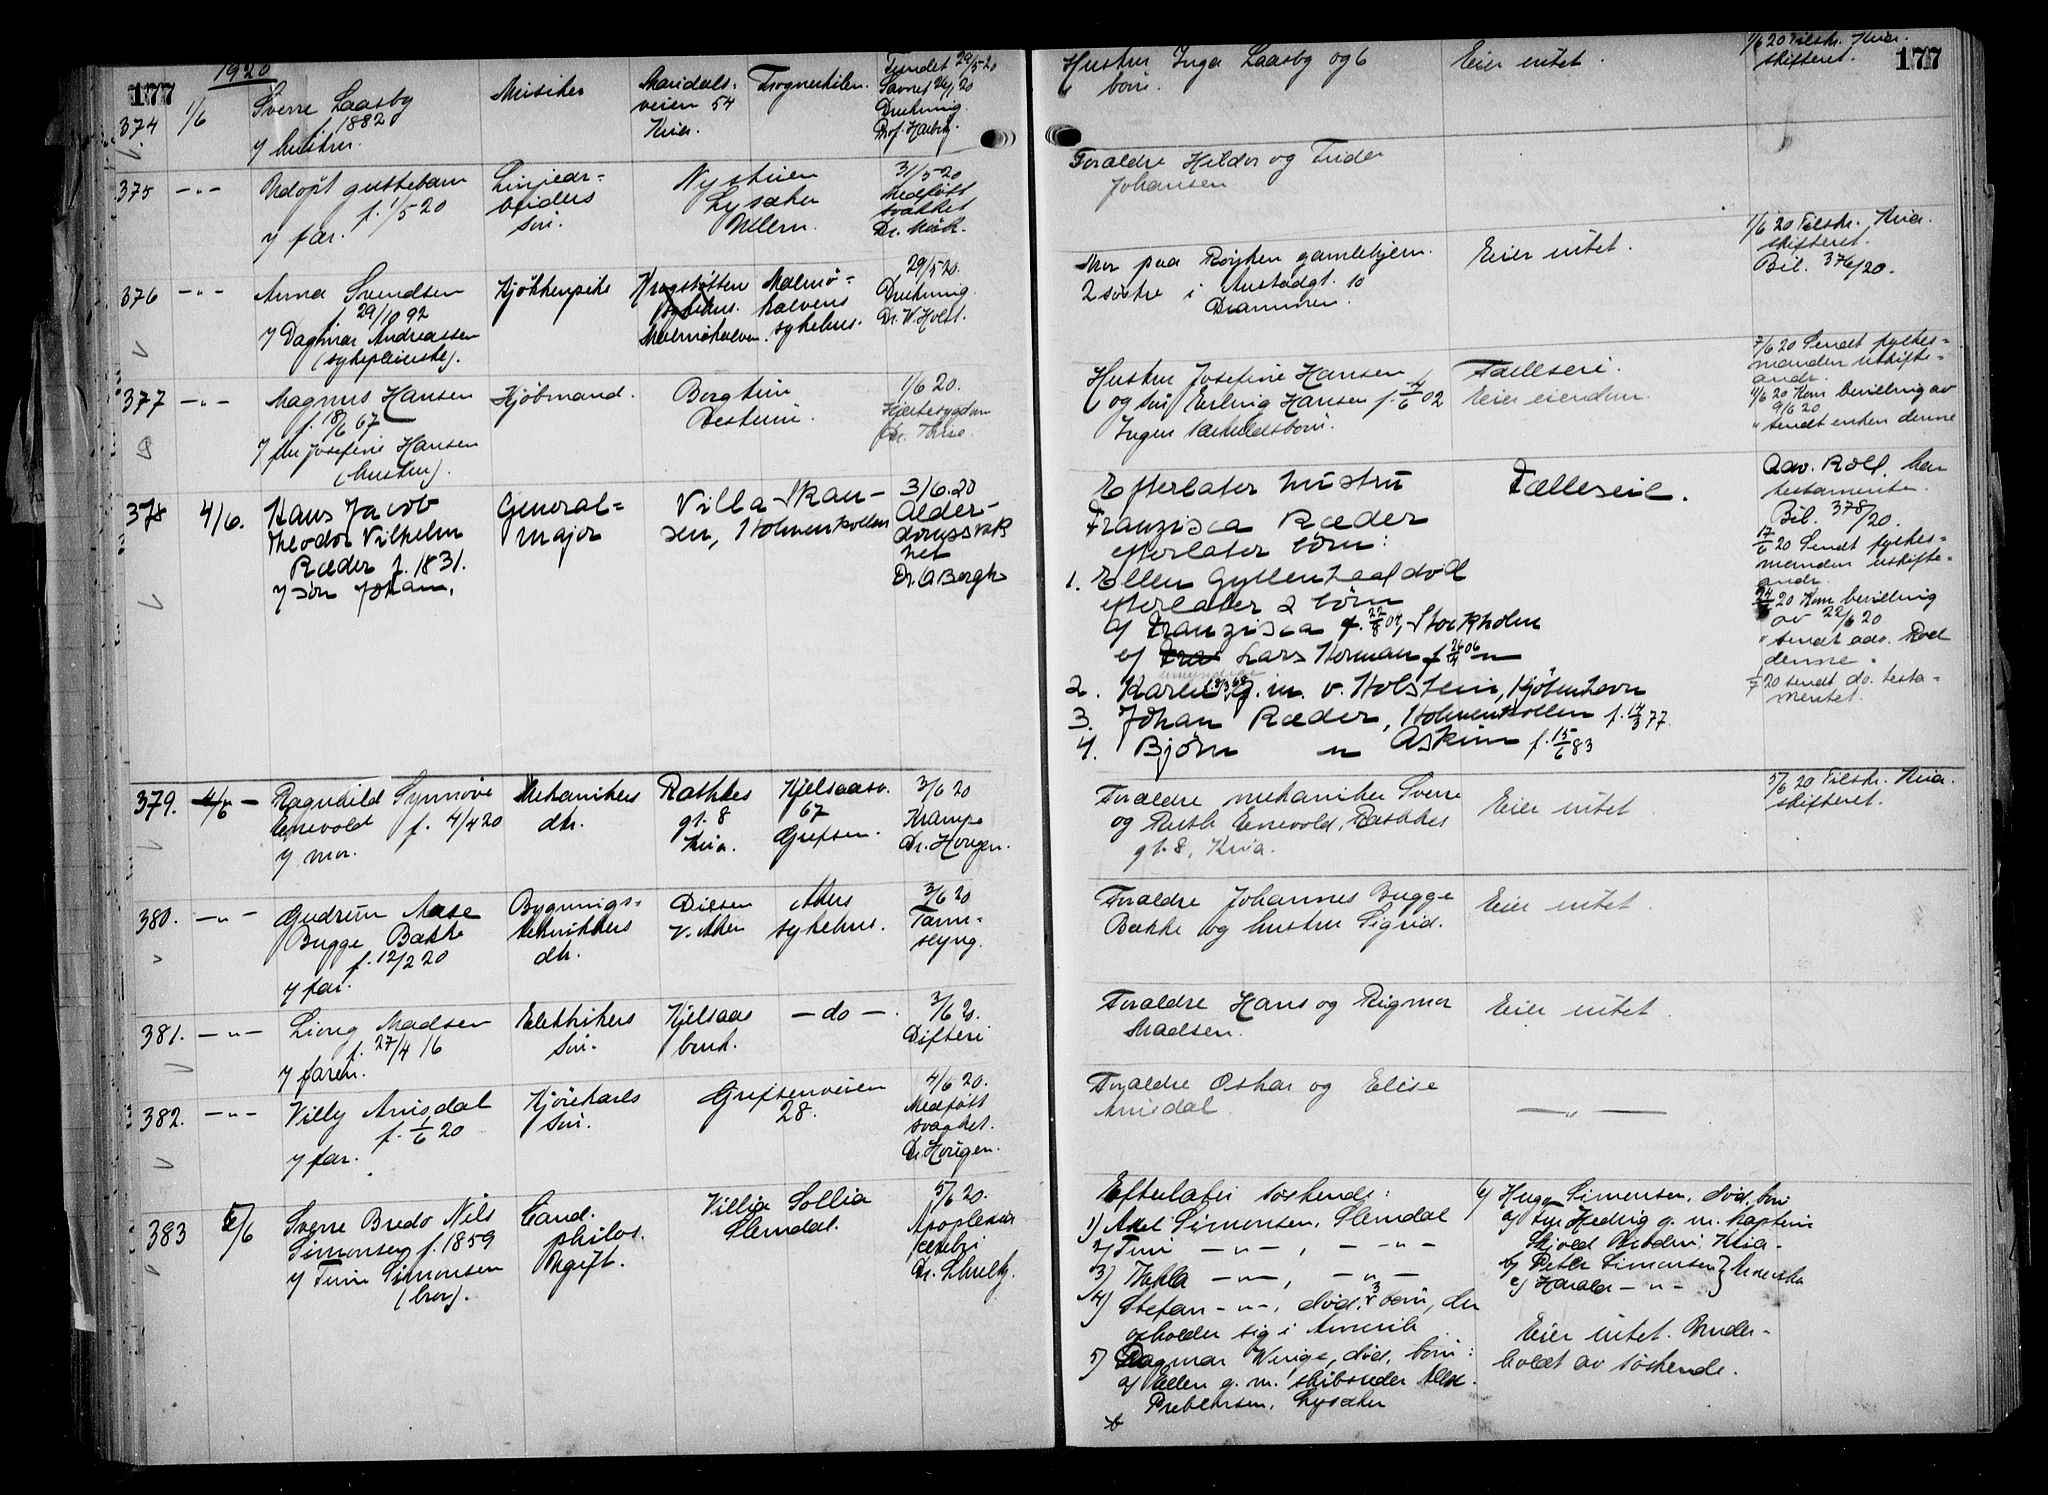 177
1920
374
1/6
Sverre Laasby
f. 1882
v/ hustru.
Musiker
Maridals-
veien 54
Kria.
Frognerkilen.
Fundet 29/5 20
Savnet 26/1 20
Drukning.
Prof. Harbitz.
375
—"—
Udøpt guttebarn
f. 1/5 20
v/ far.
Linjear-
beiders
søn.
Nystuen
Lysaker
Ullern.
31/5 20
Medfødt
svakhet
Dr. Mørk.
376
—"—
Anna Svendsen
f. 29/10 92
v/ Dagmar Andreassen
(sykepleierske).
Kjøkkenpike
Krogstøtten
sykehus.
Malmøkalven.
Malmø-
kalvens
sykehus.
29/5 20.
Drukning.
Dr. W. Holst.
377
—"—
Magnus Hansen
f. 18/6 67
v/ fru Josefine Hansen
(hustru).
Kjøbmand.
Borgtun
Bestum.
1/6 20.
Hjertesygdom
Dr. Thise.
378
4/6.
Hans Jacob
Theodor Vilhelm
Ræder f. 1831.
v/ søn Johan.
General-
major
Villa Skan-
sen, Holmenkollen
3/6.20
Alder-
domssvak
het
Dr. O Borgh
379.
4/6 —
Ragnhild Synnøve
Enevold f. 4/4 20
v/ mor.
Mekanikers
dtr.
Rathkes
gt. 8
Kria.
Kjelsaasv.
67
Grefsen.
3/6 20
Krampe
Dr. Horgen.
380.
—"—
Gudrun Aase
Bugge Bakke
f. 12/2 20
v/ far.
Bygnings-
teknikkers
dtr.
Disen
V. Aker
Akers
sykehus.
3/6 20
Tarm-
slyng.
381.
—"—
Liong Madsen
f. 27/4 16
v/ faren.
Elektrikers
søn.
Kjelsaas
bruk.
—do—.
3/6 20.
Difteri
382.
—"—
Villy Arnsdal
f. 1/6 20
v/ far.
Kjørekarls
søn.
Grefsenveien
28.
4/6 20.
Medfødt
svaghet.
Dr. Horgen.
383
5/6
Sverre Bredo Nils
Simonsen f. 1859
v/ Tini Simonsen
(bror).
Cand.
philos.
Ugift.
Villa Sollia
Slemdal.
5/6 20.
Apoplexia
cerebri
Dr. Schultz.
177
Hustru Inga Laasby og 6
børn.
Eier intet.
1/6 20 Tilstr. Kria.
skifteret.
Forældre Hildor og Frida
Johansen
Mor paa Røyken gamlehjem.
2 søstre i Austadgt. 10
Drammen.
Eier intet.
1/6 20 Tilstr. Kria.
skifteret.
Bil. 376/20.
Hustru Josefine Hansen
og søn Erling Hansen f. 4/6 02
Ingen særkuldsbørn.
Fælleseie.
Eier eiendom.
7/6 20 Sendt fylkes-
manden uskifte-
andr.
11/6 20 Kom bevilling av
9/6 20
" sendt enken denne
Efterlater hustru
Franzisca Ræder
efterlater børn:
1. Ellen Gyllenhaal død
efterlater 2 børn
a/ Franzisca f. 22/8 04, Stockholm
b/ Lars Herman f 26/4 06 —"—
2. Karen g. m. v. Holstein, Kjøbenhavn
3. Johan Ræder, Holmenkollen f. 14/3 77.
4. Bjørn —"— Askim f. 15/6 83
Fælleseie.
Adv. Roll. har
testamente.
Bil. 378/20.
17/6 20 Sendt fylkes-
manden uskifte-
andr.
24/6 20 Kom bevilling
av 22/6 20
" sendt adv. Roll
denne.
1/7 20 sendt do. testa-
mentet.
Forældre mekaniker Sverre
og Ruth Enevold, Rathkes
gt. 8, Kria.
Eier intet
5/6 20 Tilstr. Kria.
skifteret.
Forældre Johannes Bugge
Bakke og hustru Sigrid.
Eier intet.
Forældre Hans og Rigmor
Madsen.
Eier intet.
Forældre Oskar og Elise
Arnsdal.
—"—
Efterlater søskende:
1) Axel Simonsen, Slemdal
2) Tini —"—, —"—
3) Thekla —"—, —"—
4) Stefan —"—, død, 3 børn, der
opholder sig i Amerika
5) Dagmar Wiige, død, børn:
a/ Ellen g. m. skibsreder Alex.
Prebensen, Lysaker
b
6) Hugo Simonsen, død, børn
a/ fru Hedvig g. m. kaptein
Skjold Bruden, Kria.
b/ Peter Simonsen } Amerika
c/ Harald —"—
Eier intet. Under-
holdt av søskende.